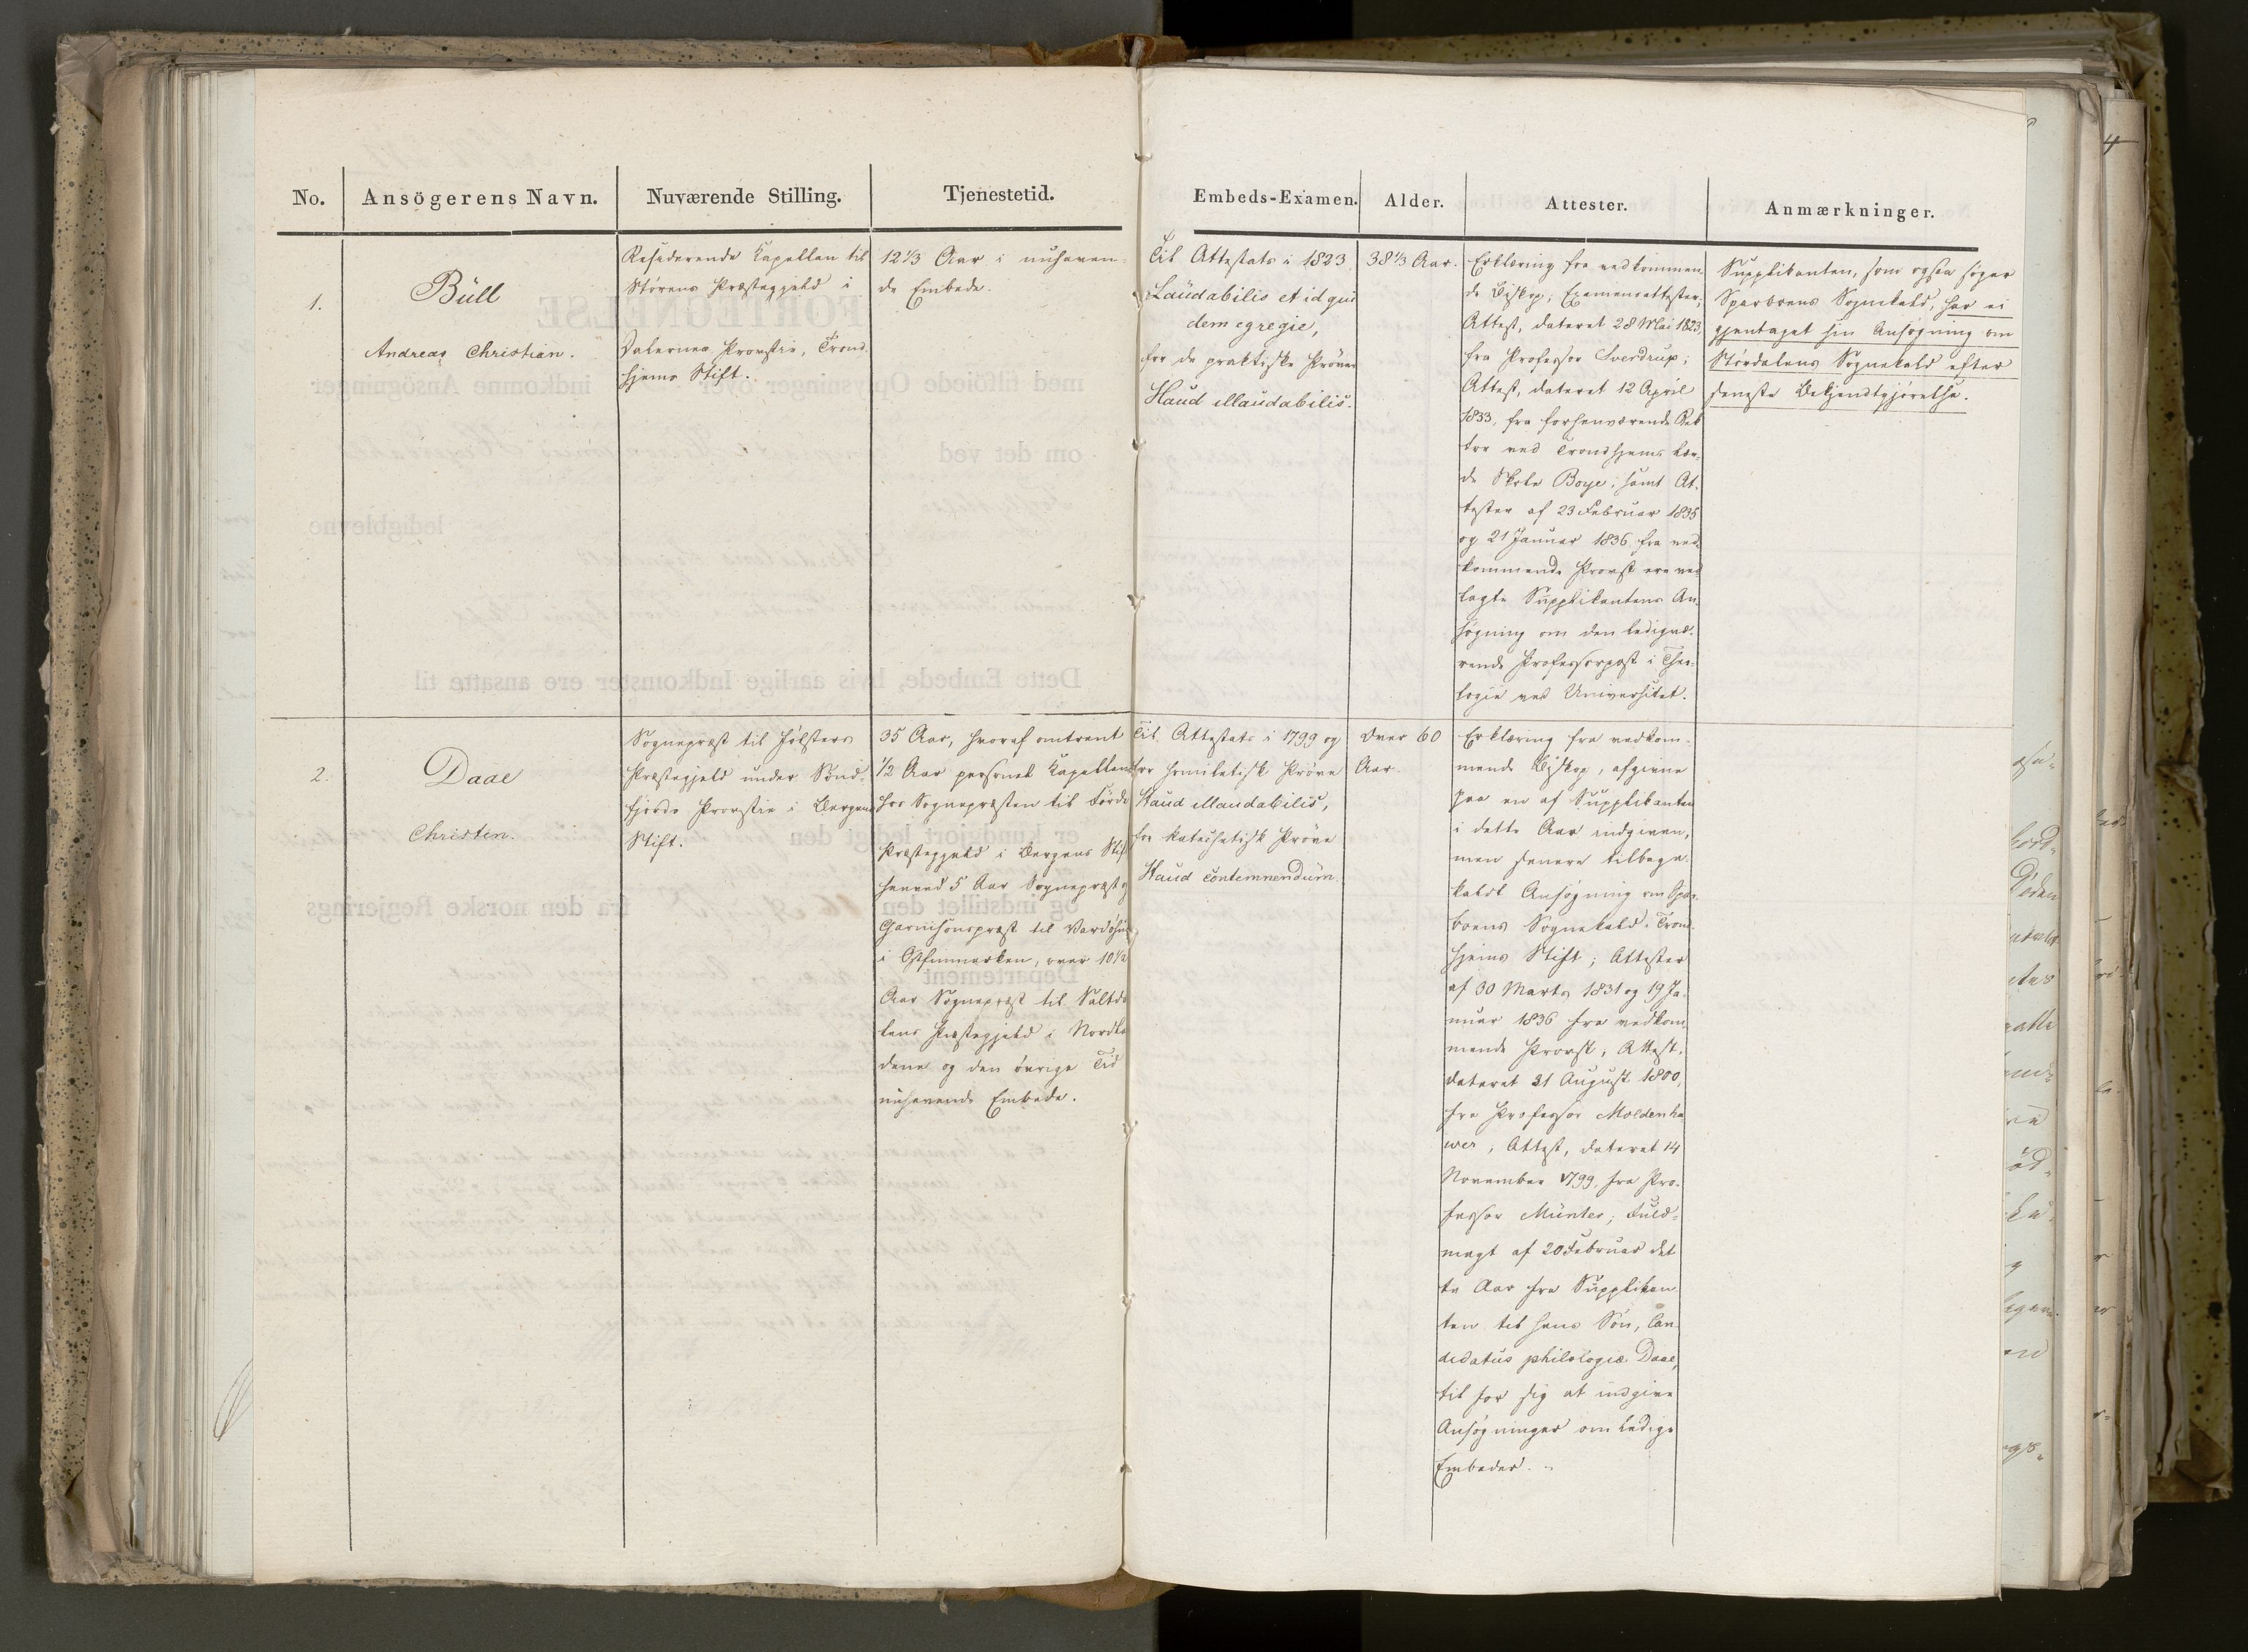 No.
Ansögerens Navn.
Nuværende Stilling.
Tjenestetid.
Embeds-Examen.
Alder.
Attester.
Anmærkninger.
1.
Büll
Andreas Christian.
Residerende Kapellan til
Störens Præstegjeld i
Dalernes Provstie, Trond-
hjems Stift.
12 1/3 Aar i nuhaven-
de Embede.
Til Attestats i 1823
Laudabilis et id qui
dem egregie,
for de praktiske Prøver
Haud illaudabilis.
38 1/3 Aar.
Erklæring fra vedkommen-
de Biskop; Examensattester;
Attest, dateret 28 Mai 1823,
fra Professor Sverdrup;
Attest, dateret 12 April
1833, fra forhenværende Rek
tor ved Trondhjems lær-
de Skole Boye; samt At-
tester af 23 Februar 1835
og 21 Januar 1836 fra ved-
kommende Provst ere ved
lagte Supplikantens An-
søgning om den ledigvæ-
rende Professorpost i Theo-
logie ved Universitet.
Supplikanten, som ogsaa søger
Sparboens Sognekald, har ei
gjentaget sin Ansøgning om
Størdalens Sognekald efter
seneste Bekjendtgjørelse.
2.
Daae
Christen.
Sognepræst til Jølsters
Præstegjeld under Sönd-
fjords Provstie i Bergens
Stift.
35 Aar, hvoraf omtrent
1/2 Aar personel Kapellan
hos Sognepræsten til Førde
Præstegjeld i Bergens Stif
henved 5 Aar Sognepræst og
Garnisonspræst til Vardøhus
i Østfinmarken, over 10 1/2
Aar Sognepræst til Saltda
lens Præstegjeld i Nordla
dene og den øvrige Tid
nuhavende Embede.
Til Attestats i 1799 og
for homiletisk Prøve
Haud illaudabilis,
for katechetisk Prøve
Haud contemnendum.
Over 60
Aar.
Erklæring fra vedkom-
mende Biskop, afgivne
paa en af Supplikanten
i dette Aar indgiven,
men senere tilbage-
kaldt Ansøgning om Spar-
boens Sognekald i Trond-
hjems Stift; Attester
af 30 Marts 1831 og 19 Ja-
nuar 1836 fra vedkom
mende Provst; Attest,
dateret 21 August 1800,
fra Professor Moldenha
wer; Attest, dateret 14
November 1799, fra Pro-
fessor Münter; Fuld-
magt af 20 Februar det
te Aar fra Supplikan
ten til hans Søn, Can
didatus philologiæ Daae,
til for sig at indgive
Ansøgninger om ledige
Embeder.